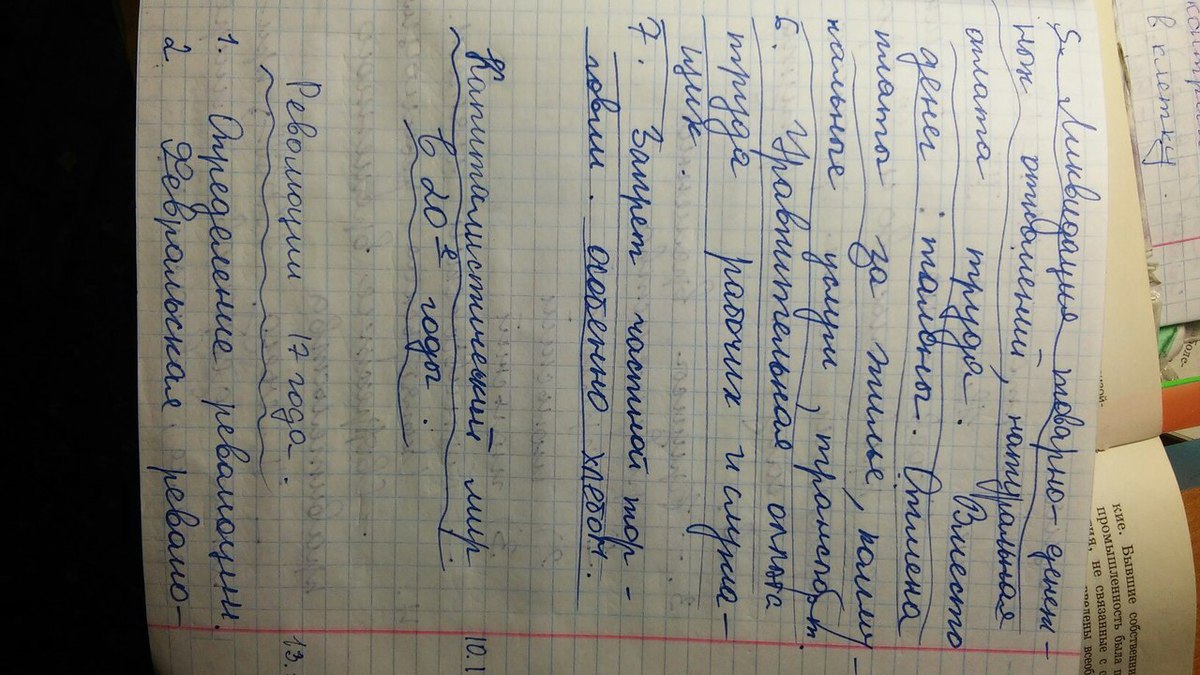 5. Ликвидация товарно-денеж-
ных отношений, натуральная
оплата труда. Вместо
денег - талоны. Отмена
платы за жилье, комму-
нальные услуги, транспорт.
6. Уравнительная оплата
труда рабочих и служа-
щих.
7. Запрет частной тор-
говли. особенно хлебом.
Капиталистический мир
в 20е годы.
10.1
Революции 17 года.
13.
1. Определение революции.
2. Февральская револю-
в клетку.
кие. Бывшие собственни
промышленность была п
ния, не связанные с